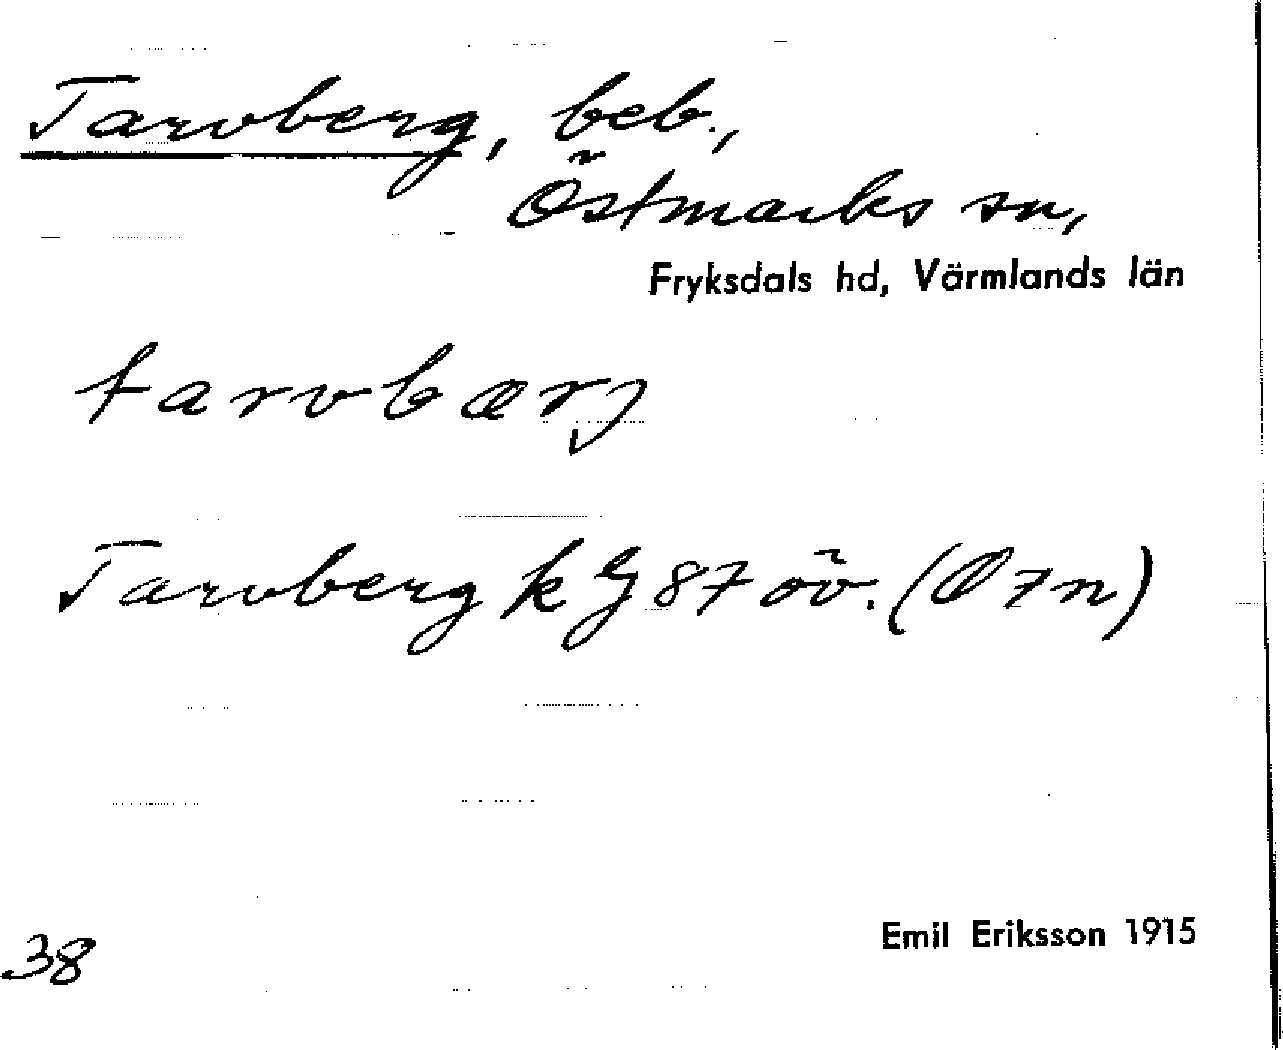 Tarvberg, beb.,
Östmarks sn,
Fryksdals hd, Värmlands län
tarvbærj
Tarvberg k Eg 87 öv. (Ö 7 n)
38
Emil Eriksson 1915